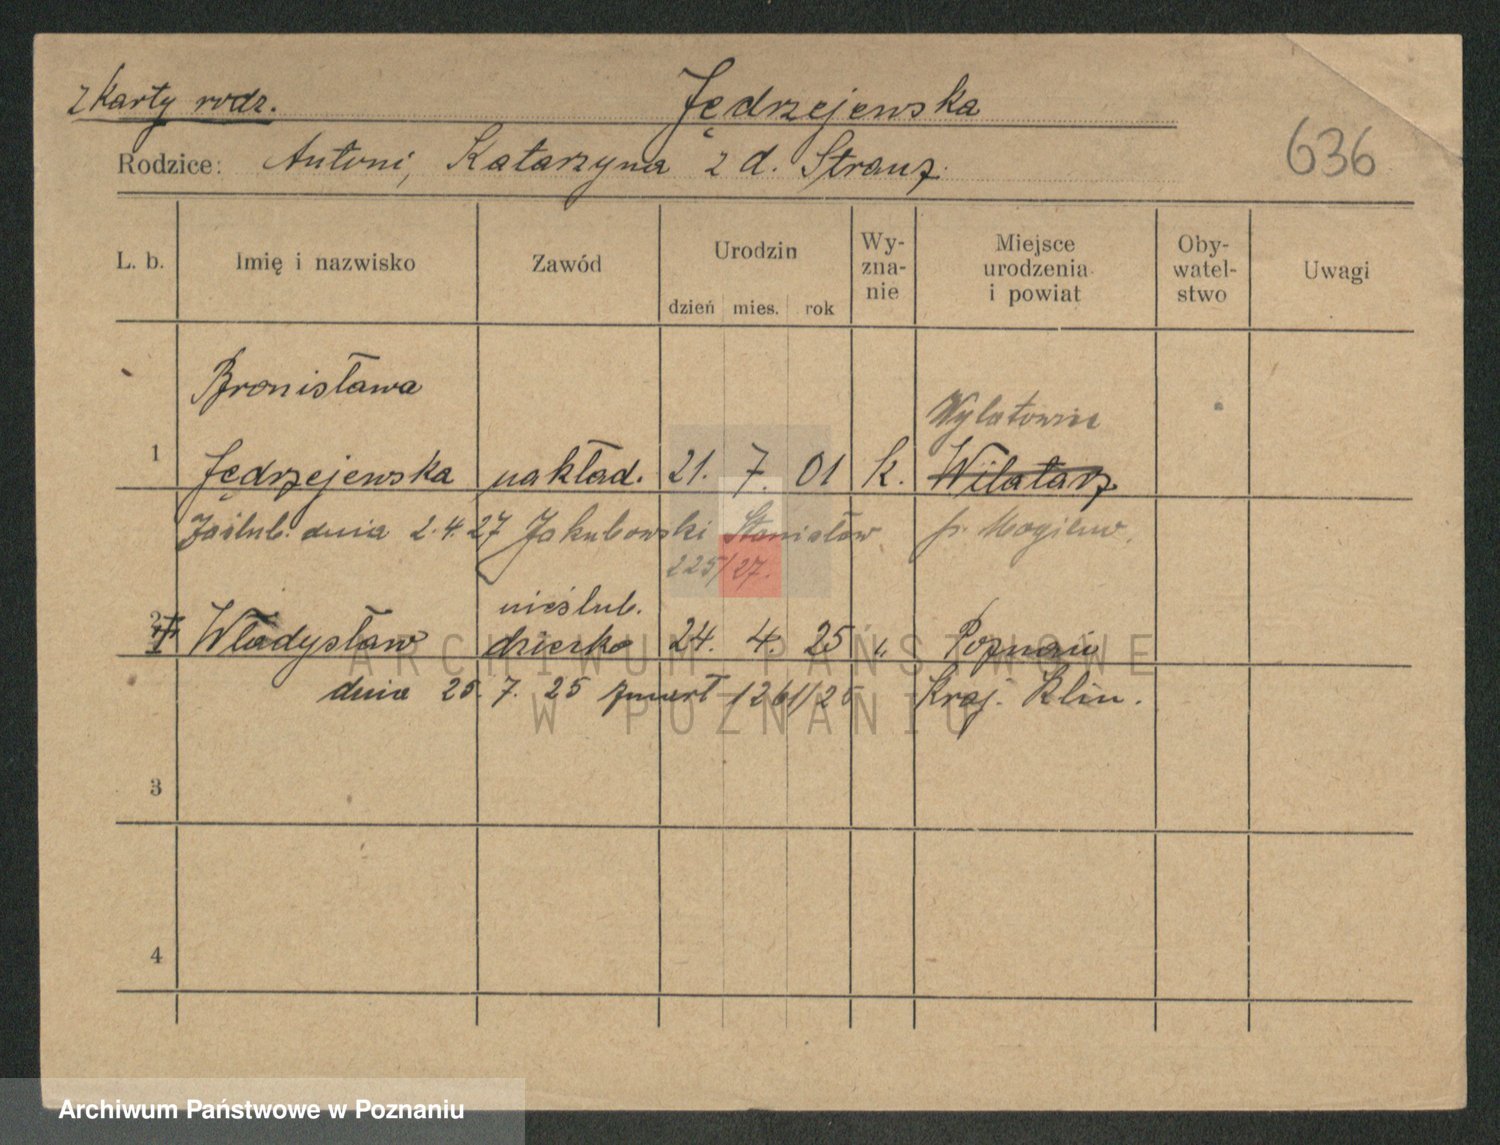 z Karty rodz. Jędrzejewska
636
Rodzice: Antoni, Katarzyna z d. Stranz
L. b. Imię i nazwisko Zawód Urodzin Wy-zna-nie Miejsce urodzenia i powiat Oby-watel-stwo Uwagi
dzień mies. rok
Bronisława
Wylatowie
1 Jędrzejewska nakład. 21. 7. 01 k. Wilatarz
Zaślub. dnia 2.4.27 Jakubowski Stanisław p. Mogilno.
225/27.
nieślub.
2 Władysław dziecko 24. 4. 25 " Poznań
dnia 25. 7. 25 zmarł 1261/25 Kraj. Klin.
3
4
ARCHIWUM PAŃSTWOWE
W POZNANIU
Archiwum Państwowe w Poznaniu